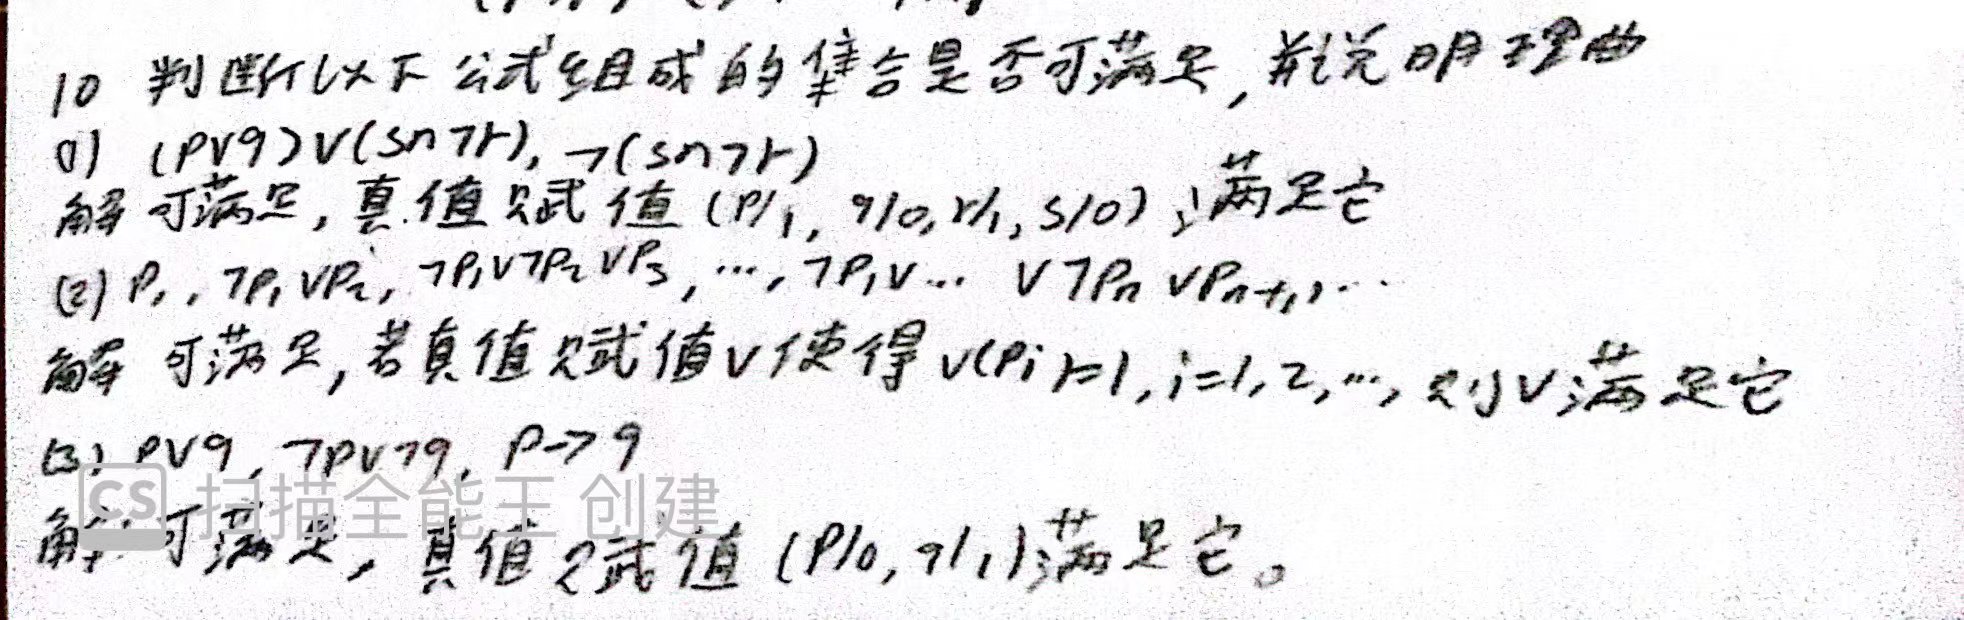 10 判断以下公式组成的集合是否可满足,并说明理由
(1) (p∨q)∨(s∧¬r), ¬(s∧¬r)
解 可满足,真值赋值 (p/1, q/0, r/1, s/0) 满足它
(2) P₁, ¬P₁∨P₂, ¬P₁∨¬P₂∨P₃, …, ¬P₁∨… ∨¬Pₙ∨Pₙ₊₁, …
解 可满足,若真值赋值v使得 v(Pi)=1, i=1,2,…, 则v满足它
(3) p∨q, ¬p∨¬q, p→q
CS 扫描全能王 创建
解 可满足, 真值赋值 (p/0, q/1) 满足它。